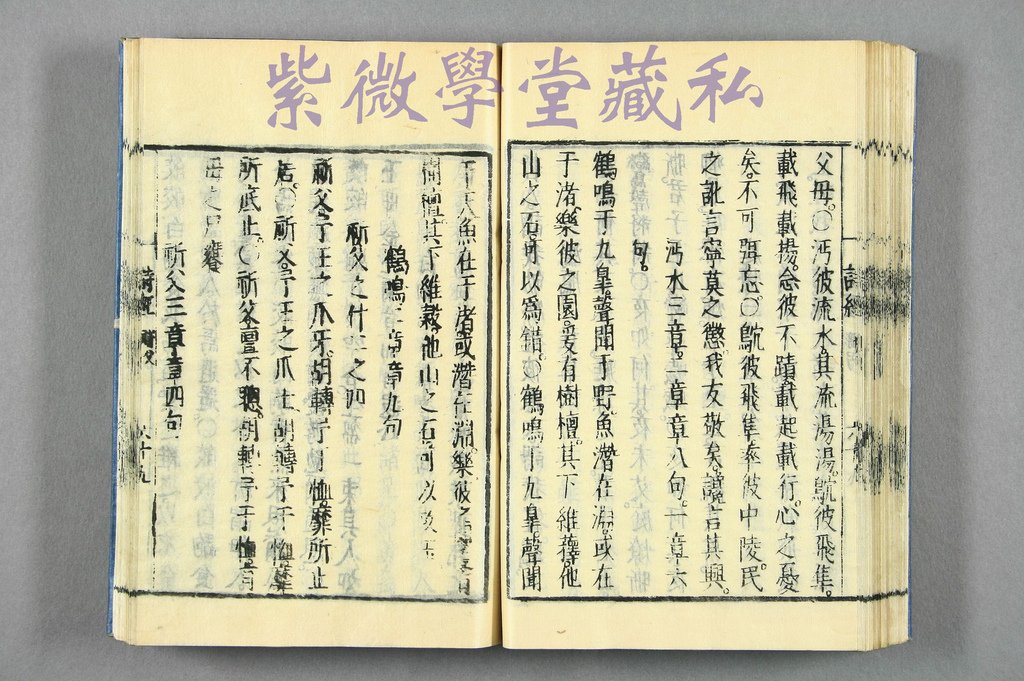 紫微學堂藏私
詩經
父母。〇沔彼流水。其流湯湯。鴥彼飛隼。
載飛載揚。念彼不蹟。載起載行。心之憂
矣。不可弭忘。〇鴥彼飛隼。率彼中陵。民
之訛言。寧莫之懲。我友敬矣。讒言其興。
沔水三章。二章章八句。一章六
句。
鶴鳴于九臯。聲聞于野。魚潛在淵。或在
于渚。樂彼之園。爰有樹檀。其下維蘀。他
山之石。可以爲錯。〇鶴鳴于九臯。聲聞
于天。魚在于渚。或潛在淵。樂彼之
檀。其下維穀。他山之石。可以攻玉
鶴鳴二章章九句
祈父之什二之四
祈父。予王之爪牙。胡轉予于恤。靡所止
居。〇祈父。予王之爪士。胡轉予于恤。靡
所底止。〇祈父。亶不聰。胡轉予于恤。有
母之尸饔
祈父三章章四句
詩經 祈父 六十九